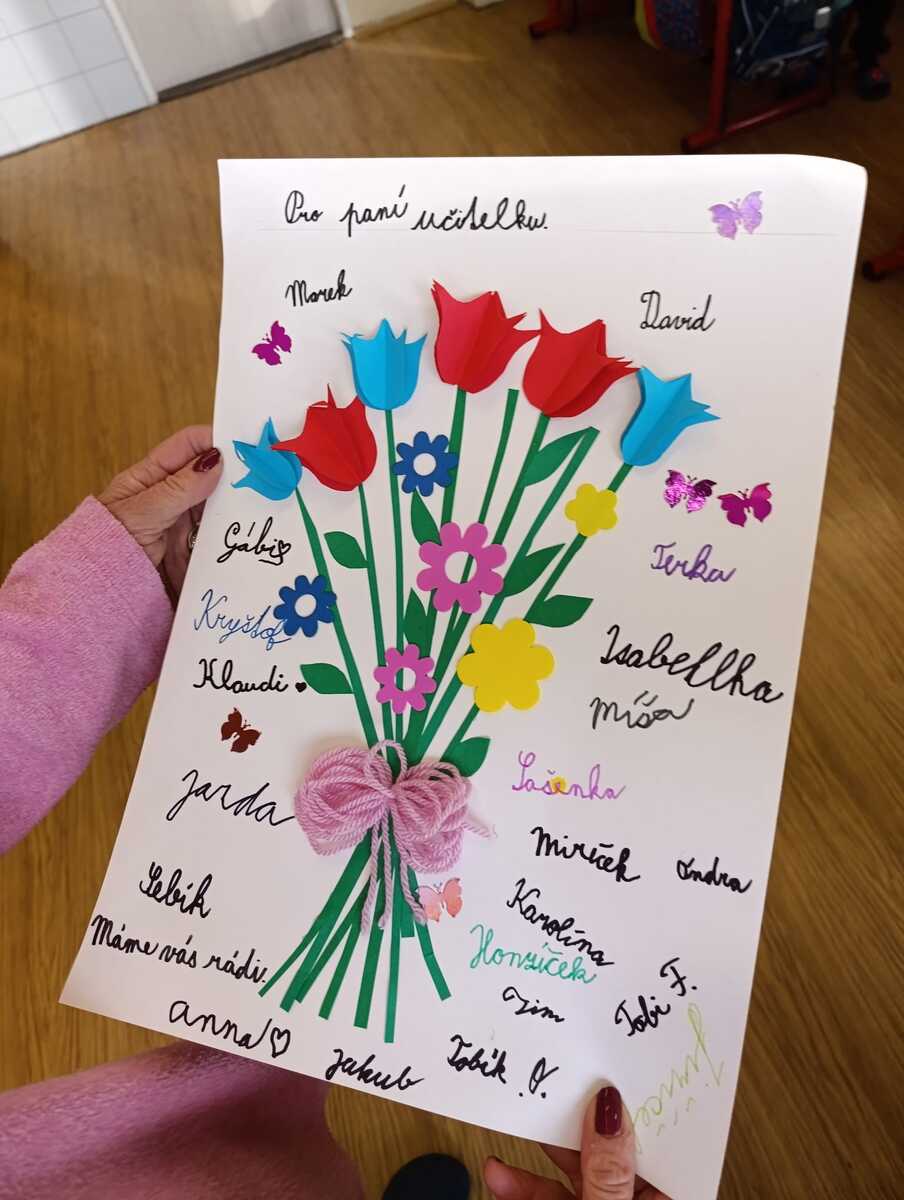 Pro paní učitelku.
Marek
David
Gábi
Terka
Kryštof
Isabellka
Klaudi
Míša
Jarda
Sašenka
Miríček
Indra
Sebík
Karolína
Máme vás rádi.
Honzíček
Jim
Tobi F.
Anna
Jakub
Tobík P.